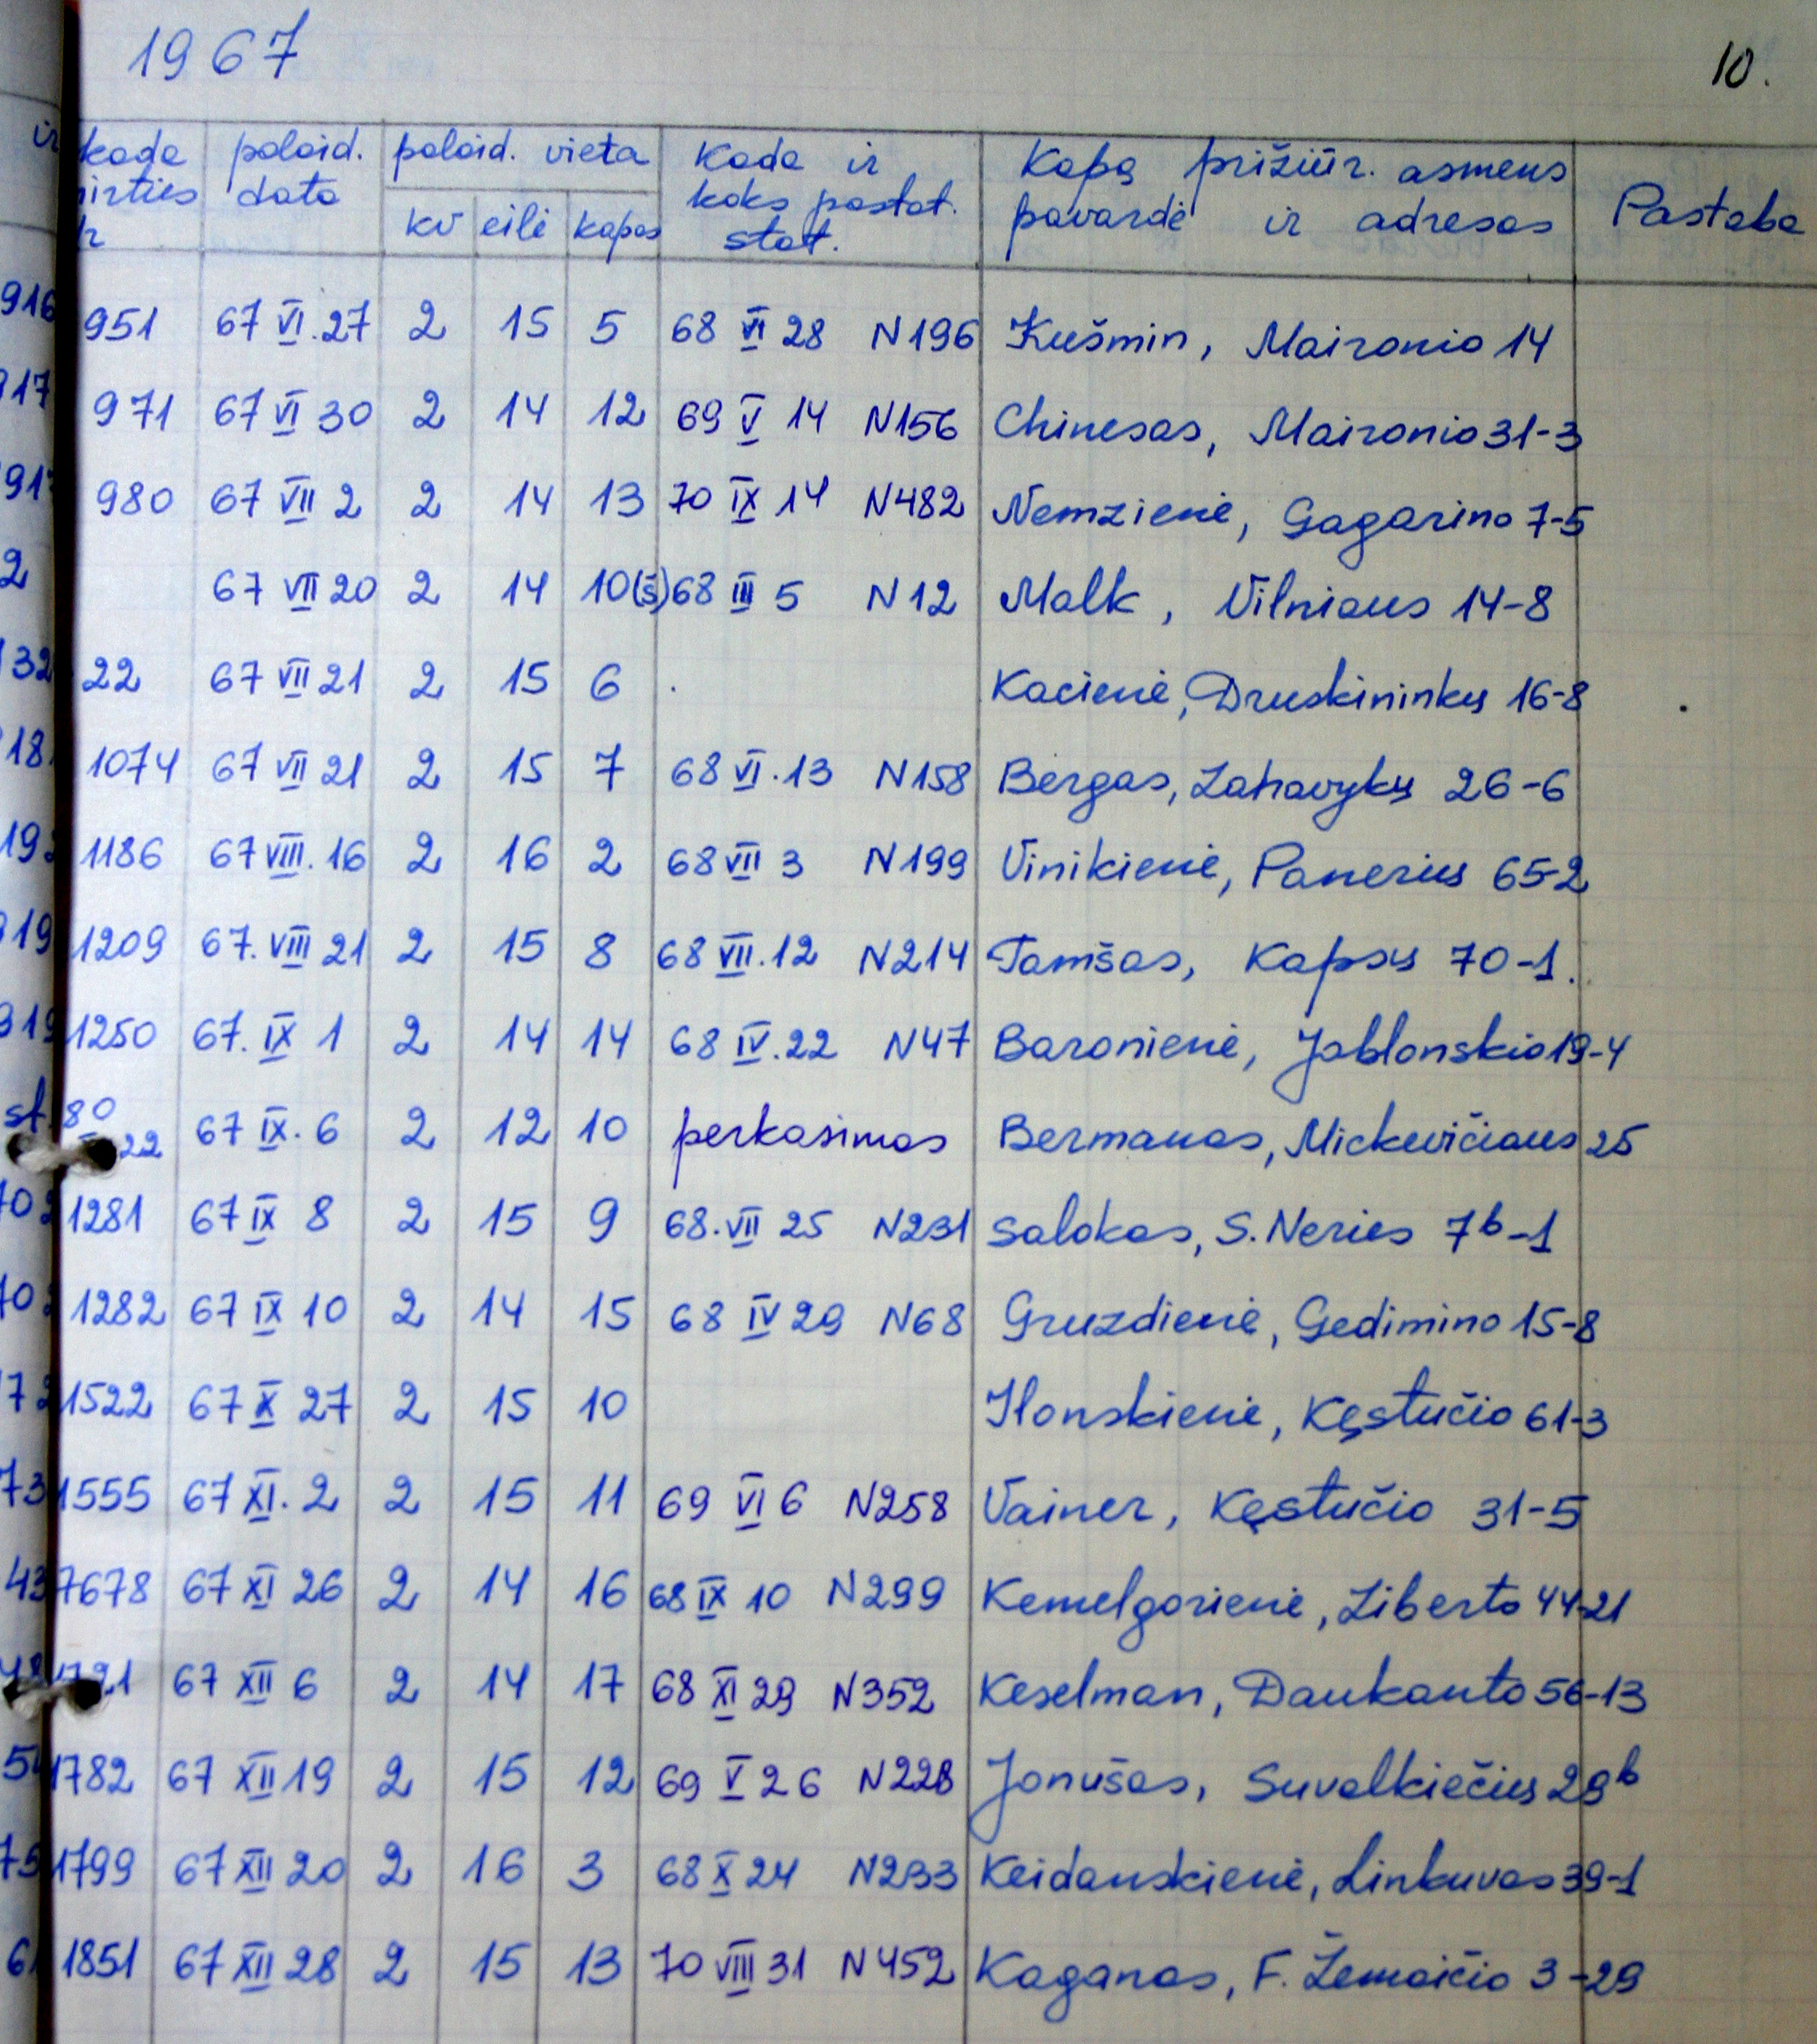 1967
10.
kada palaid. palaid. vieta Kada ir Kapą prižiūr. asmens
data koks pastat. pavardė ir adresas Pastaba
kv eilė kapas stat.
951 67 VI.27 2 15 5 68 VI 28 N196 Kušmin, Maironio 14
971 67 VI 30 2 14 12 69 V 14 N156 Chinesas, Maironio 31-3
980 67 VII 2 2 14 13 70 IX 14 N482 Nemzienė, Gagarino 7-5
67 VII 20 2 14 10(š) 68 III 5 N12 Malk, Vilniaus 14-8
22 67 VII 21 2 15 6 Kacienė, Druskininkų 16-8
1074 67 VII 21 2 15 7 68 VI.13 N158 Bergas, Lahavykų 26-6
1186 67 VIII.16 2 16 2 68 VII 3 N199 Vinikienė, Panerių 65-2
1209 67.VIII 21 2 15 8 68 VII.12 N214 Tamšas, Kapsų 70-1.
1250 67.IX 1 2 14 14 68 IV.22 N47 Baronienė, Jablonskio 19-4
80 22 67 IX.6 2 12 10 perkasimas Bermanas, Mickevičiaus 25
1281 67 IX 8 2 15 9 68.VII 25 N231 Salokas, S.Neries 7b-1
1282 67 IX 10 2 14 15 68 IV 29 N68 Gruzdienė, Gedimino 15-8
1522 67 X 27 2 15 10 Ilonskienė, Kęstučio 61-3
1555 67 XI.2 2 15 11 69 VI 6 N258 Vainer, Kęstučio 31-5
7678 67 XI 26 2 14 16 68 IX 10 N299 Kemelgorienė, Liberto 44-21
67 XII 6 2 14 17 68 XI 29 N352 Keselman, Daukanto 56-13
1782 67 XII 19 2 15 12 69 V 26 N228 Jonušas, Suvalkiečių 29b
1799 67 XII 20 2 16 3 68 X 24 N233 Keidanskienė, Linkuvos 39-1
1851 67 XII 28 2 15 13 70 VIII 31 N452 Kaganas, F. Žemaičio 3-29